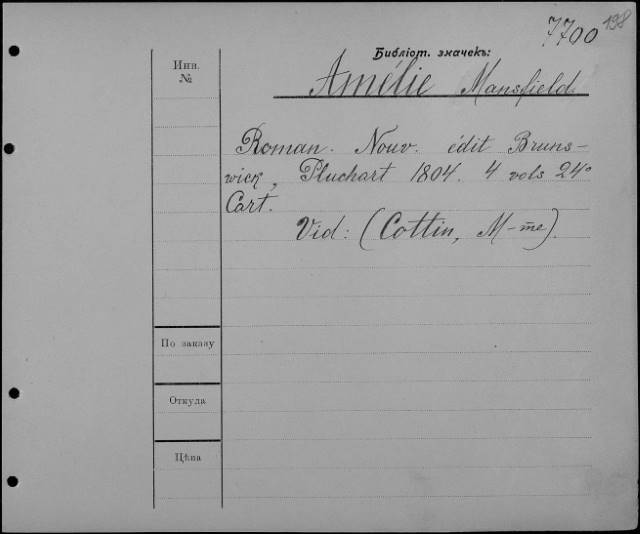 7700 198
Библіот. значекъ:
Инв.
№
Amélie Mansfield
Roman. Nouv. édit Bruns-
wick, Pluchart 1804. 4 vols 24°
Cart.
Vid: (Cottin, M-me).
По заказу
Откуда
Цѣна